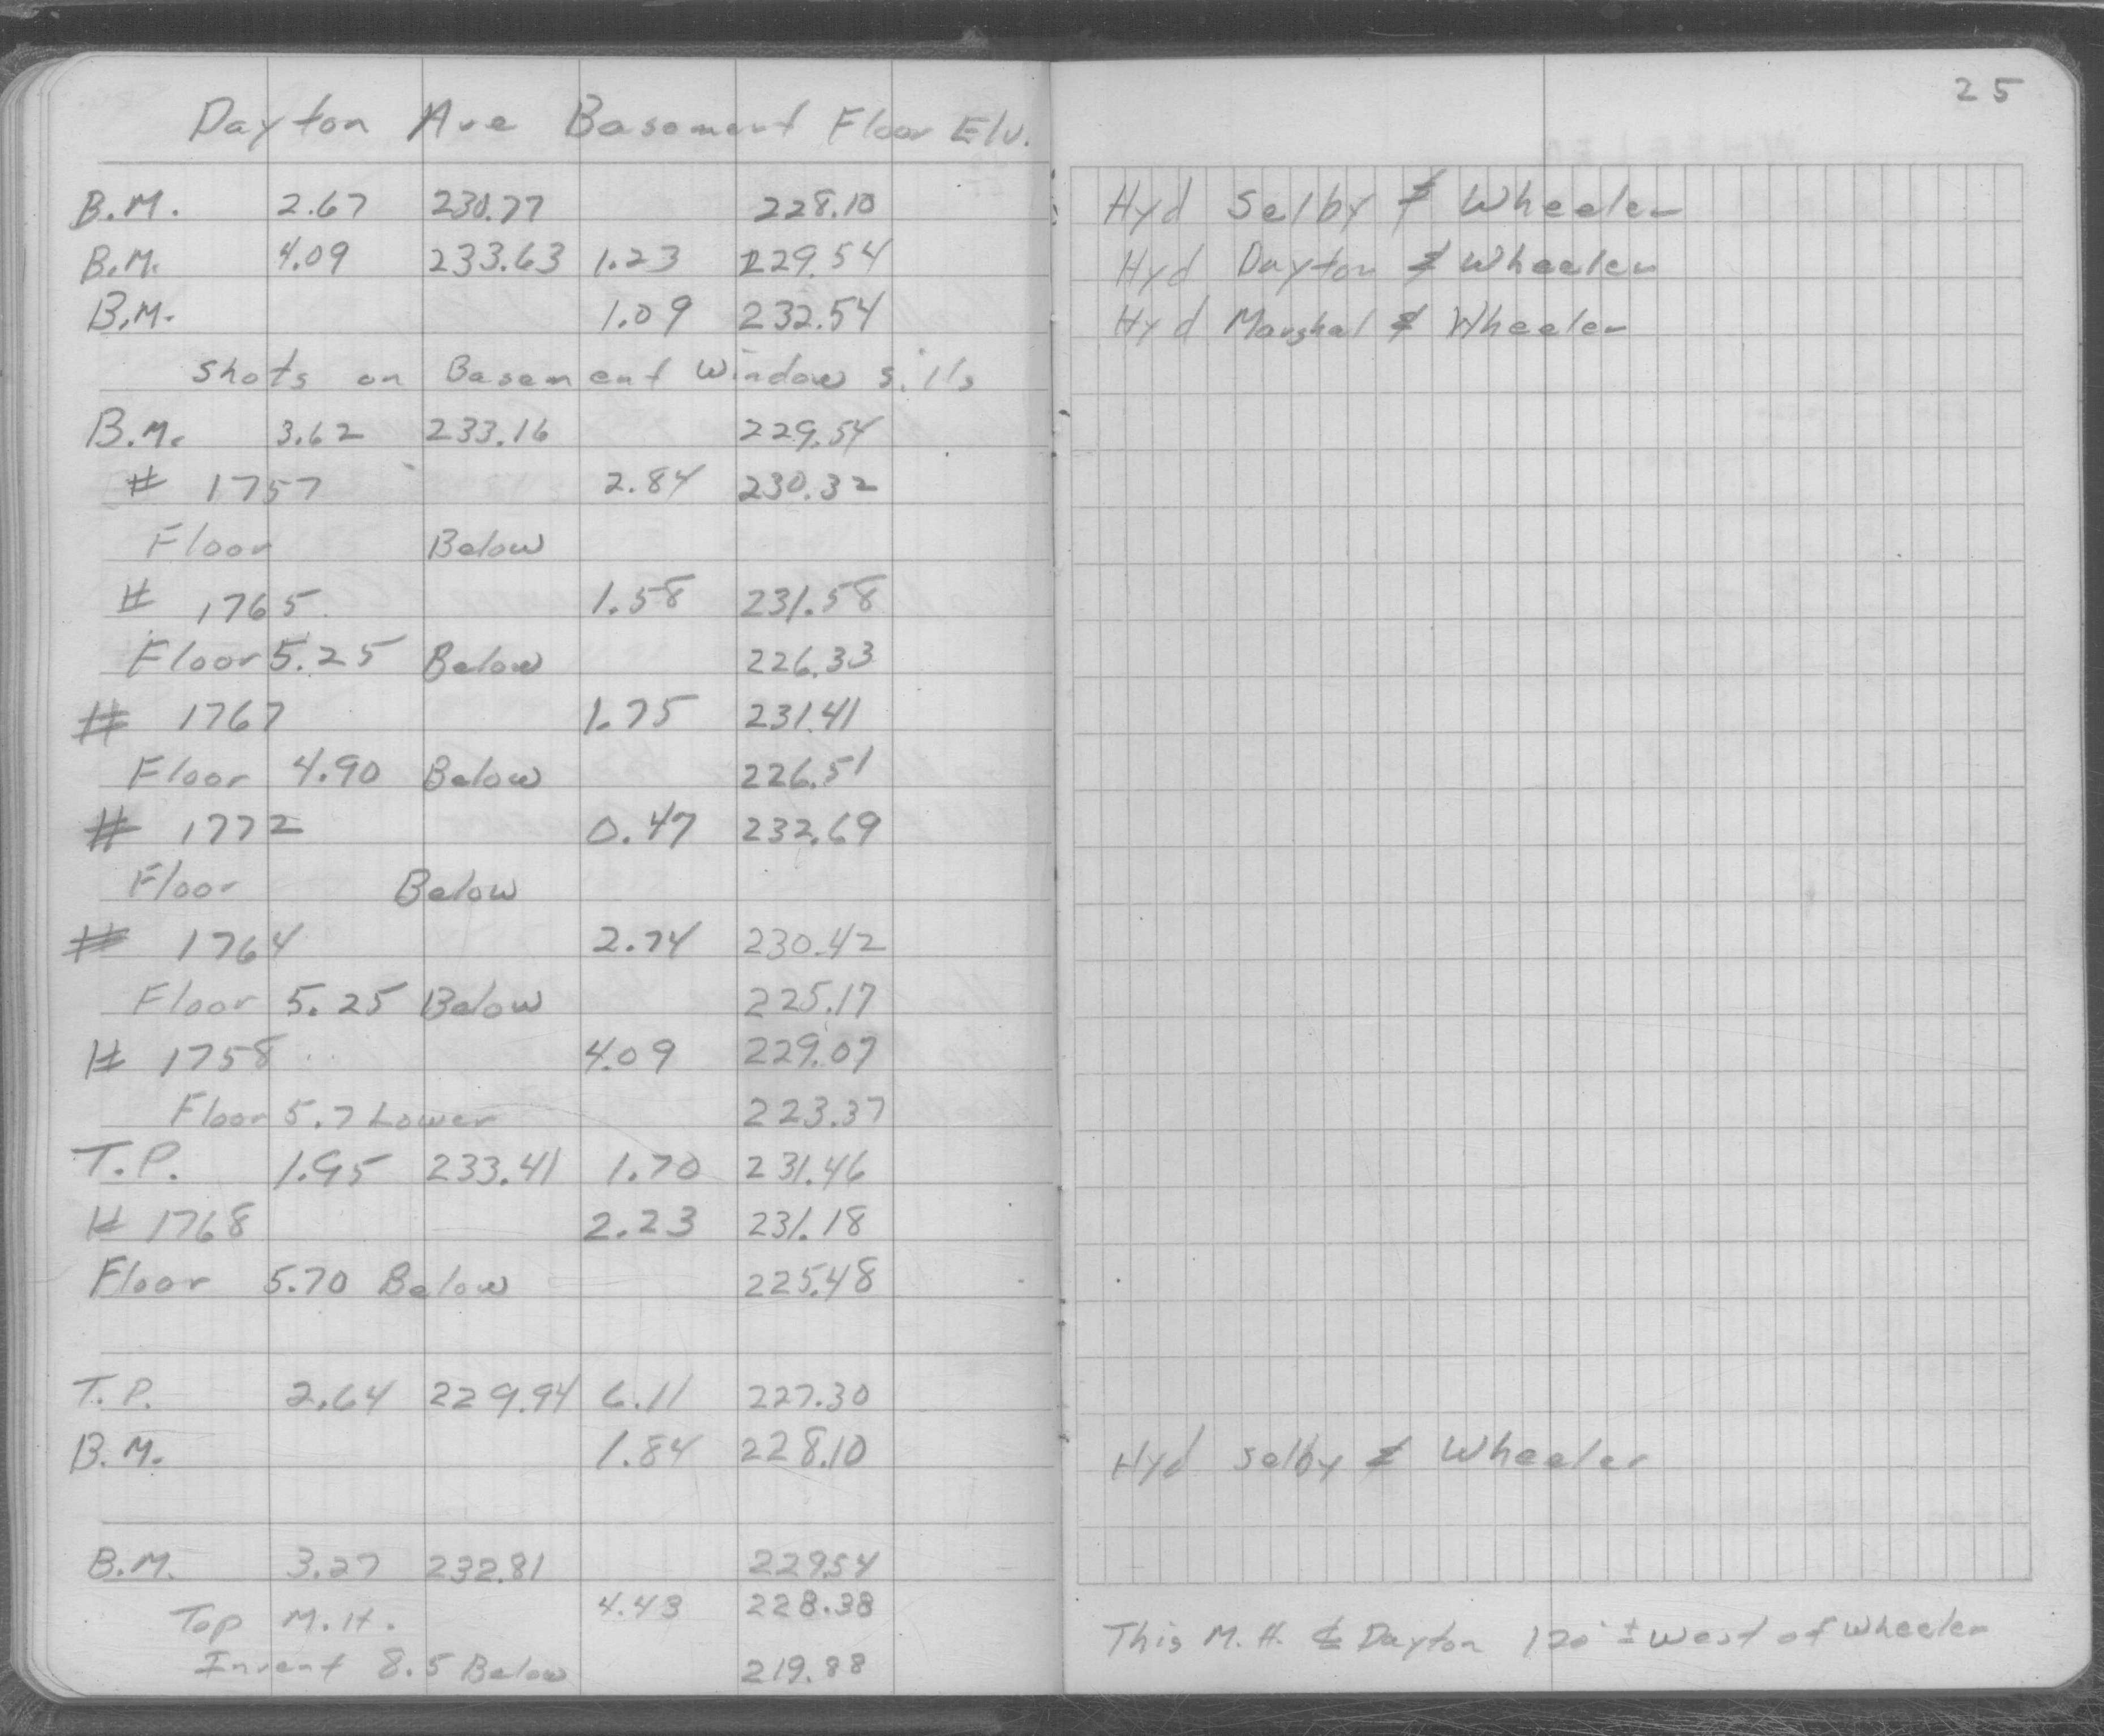 Dayton Ave Basement Floor Elv.
B.M. 2.67 230.77 228.10
B.M. 4.09 233.63 1.23 229.54
B.M. 1.09 232.54
Shots on Basement Window Sills
B.M. 3.62 233.16 229.54
# 1757 2.84 230.32
Floor Below
# 1765 1.58 231.58
Floor 5.25 Below 226.33
# 1767 1.75 231.41
Floor 4.90 Below 226.51
# 1772 0.47 232.69
Floor Below
# 1764 2.74 230.42
Floor 5.25 Below 225.17
# 1758 4.09 229.07
Floor 5.7 Lower 223.37
T.P. 1.95 233.41 1.70 231.46
# 1768 2.23 231.18
Floor 5.70 Below 225.48
T.P. 2.64 229.94 6.11 227.30
B.M. 1.84 228.10
B.M. 3.27 232.81 229.54
Top M.H. 4.43 228.38
Invent 8.5 Below 219.88
25
Hyd Selby & Wheeler
Hyd Dayton & Wheeler
Hyd Marshal & Wheeler
Hyd Selby & Wheeler
This M.H. ℄ Dayton 120' ± West of Wheeler